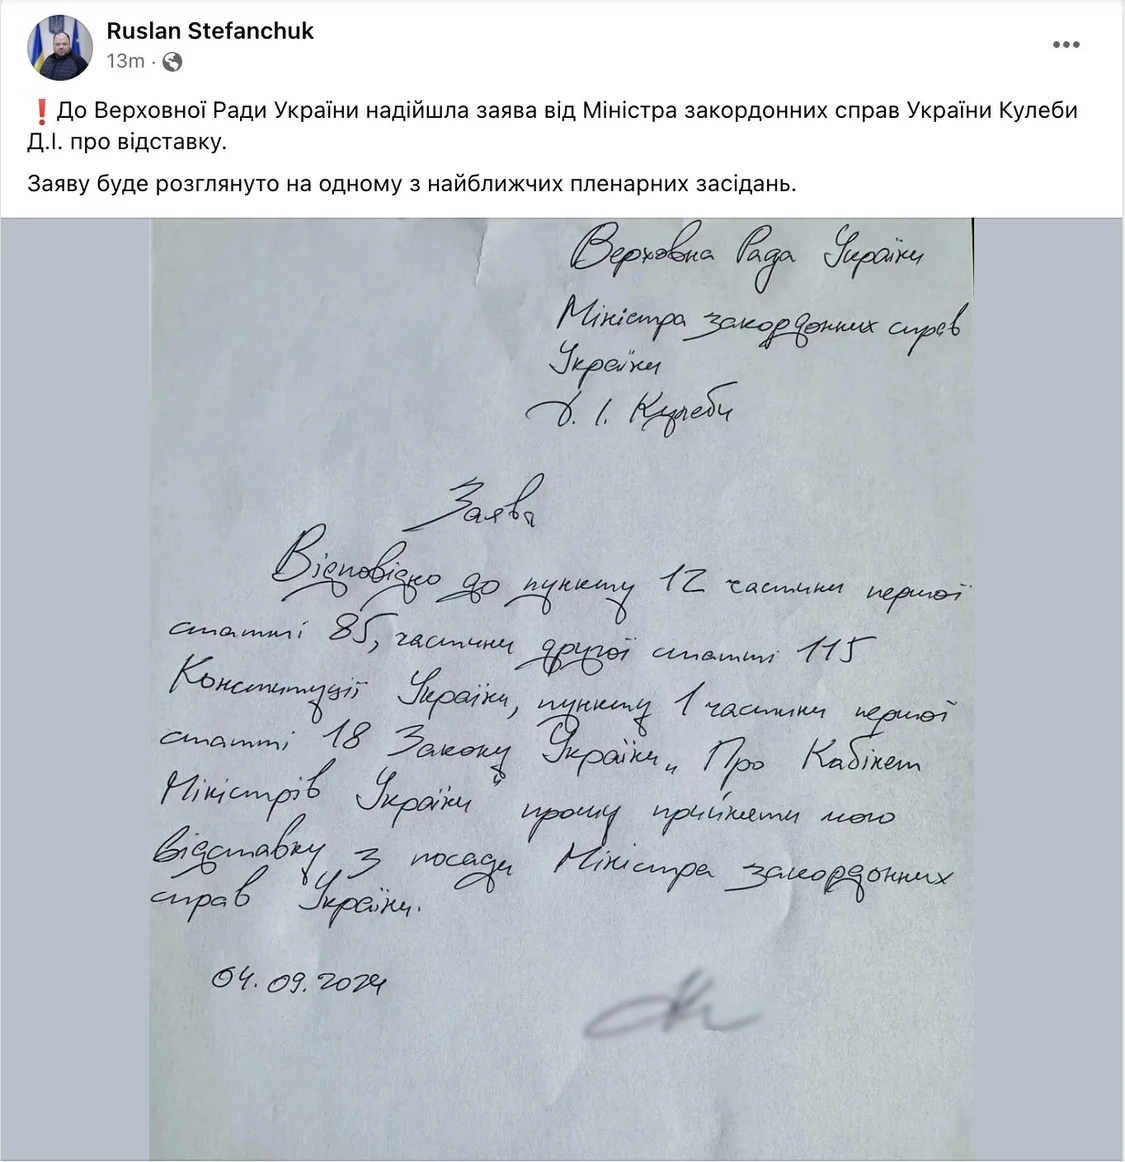 Ruslan Stefanchuk
13m ·
❗До Верховної Ради України надійшла заява від Міністра закордонних справ України Кулеби
Д.І. про відставку.
Заяву буде розглянуто на одному з найближчих пленарних засідань.
Верховна Рада України
Міністра закордонних справ
України
Д. І. Кулеби
Заява
Відповідно до пункту 12 частини першої
статті 85, частини другої статті 115
Конституції України, пункту 1 частини першої
статті 18 Закону України „Про Кабінет
Міністрів України" прошу прийняти мою
відставку з посади Міністра закордонних
справ України.
04.09.2024